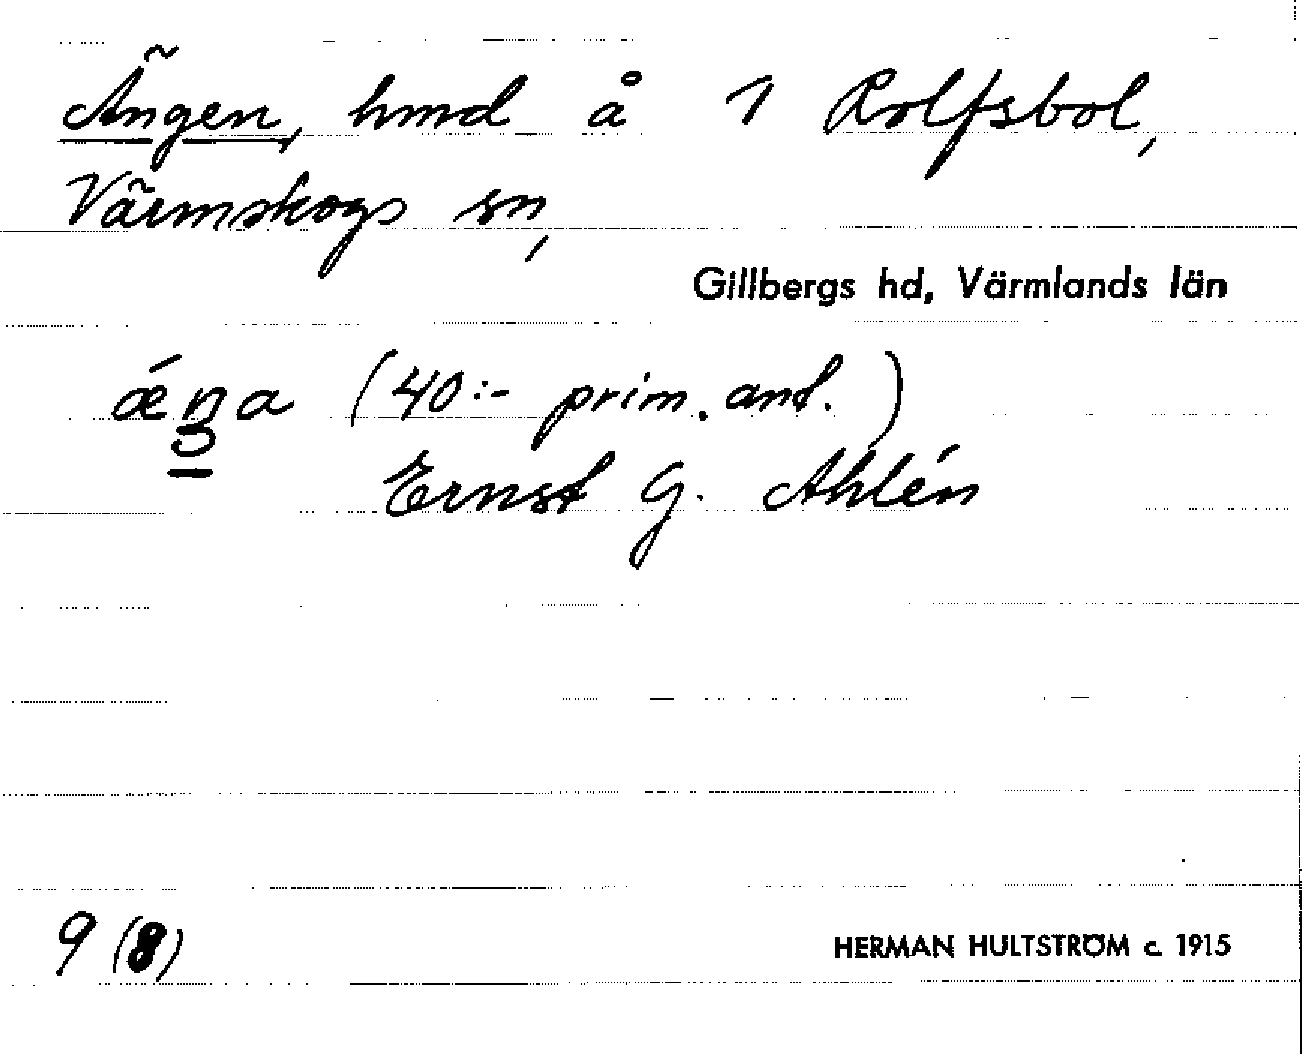 Ängen, hmd å 1 Rolfsbol,
Värmskogs sn,
Gillbergs hd, Värmlands län
ǽŋa (40:- prim. ant.)
Ernst G. Ahlén
9 (8)
HERMAN HULTSTRÖM c. 1915